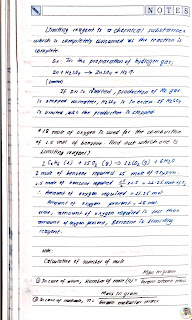 NOTES
Limiting reagent is a chemical substance
which is completely consumed as the reaction is
complete.
Ex: In the preparation of hydrogen gas,
Zn + H₂SO₄ → ZnSO₄ + H₂↑.
(Limited)
If Zn is limited, production of H₂ gas
is stopped
H₂SO₄ is in excess. If H₂SO₄
is limited, also the production is stopped.
18 mole of oxygen is used for the combustion
of 1.5 mole of benzene. Find out which one is
limiting reagent?
2 C₆H₆ (l) + 15 O₂ (g) → 12 CO₂ (g) + 6 H₂O
2 mole of benzene required 15 mole of oxygen.
1.5 mole of benzene required
= 11.25 mole
Amount of oxygen required = 11.25 mole
Amount of oxygen present = 18 mole
amount of oxygen required is less than
amount of oxygen present, benzene is limiting
reagent.
Note:
Calculation of number of mole
Mass in gram
① In case of atom, Number of mole (n) =
Mass in gram
② In case of molecule, n =